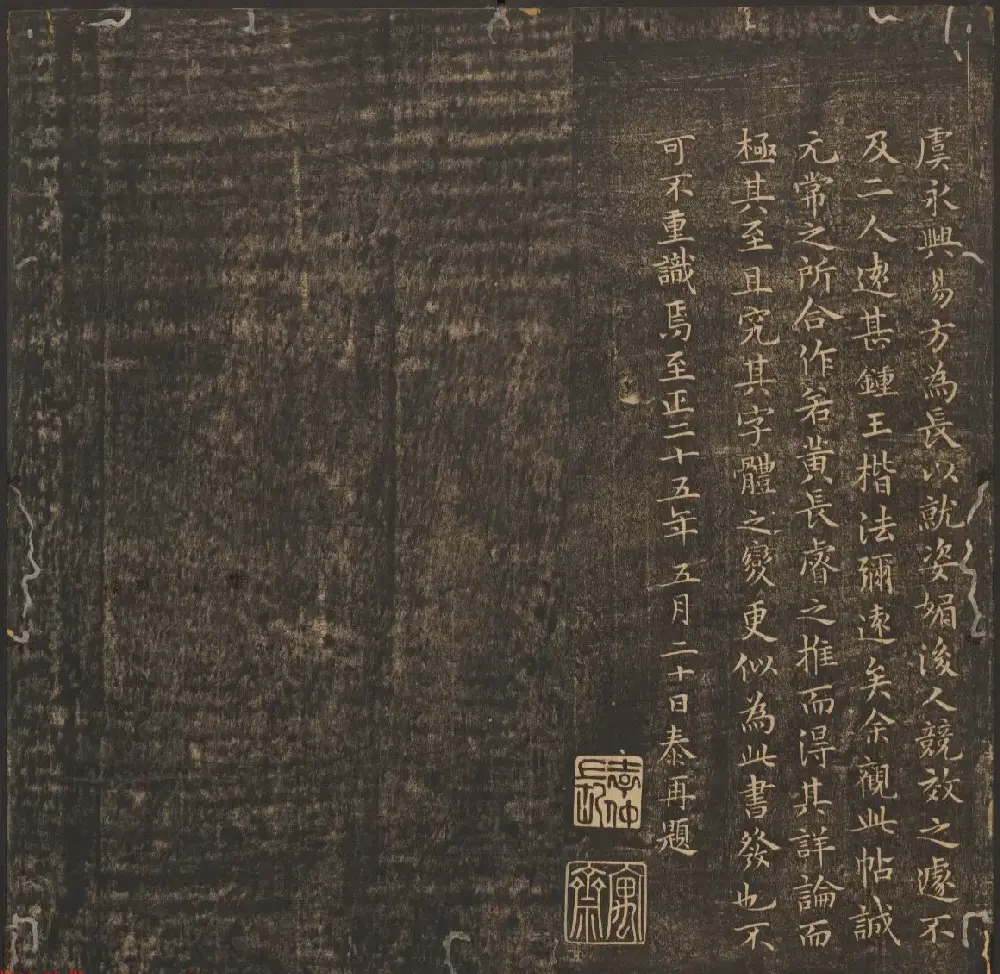 虞永興易方為長以就姿媚後人競效之遽不
及二人遠甚鍾王楷法彌遠矣余觀此帖誠
元常之所合作若黃長睿之推而得其詳論而
極其至且究其字體之變更似為此書發也不
可不重識焉至正二十五年五月二十日泰再題